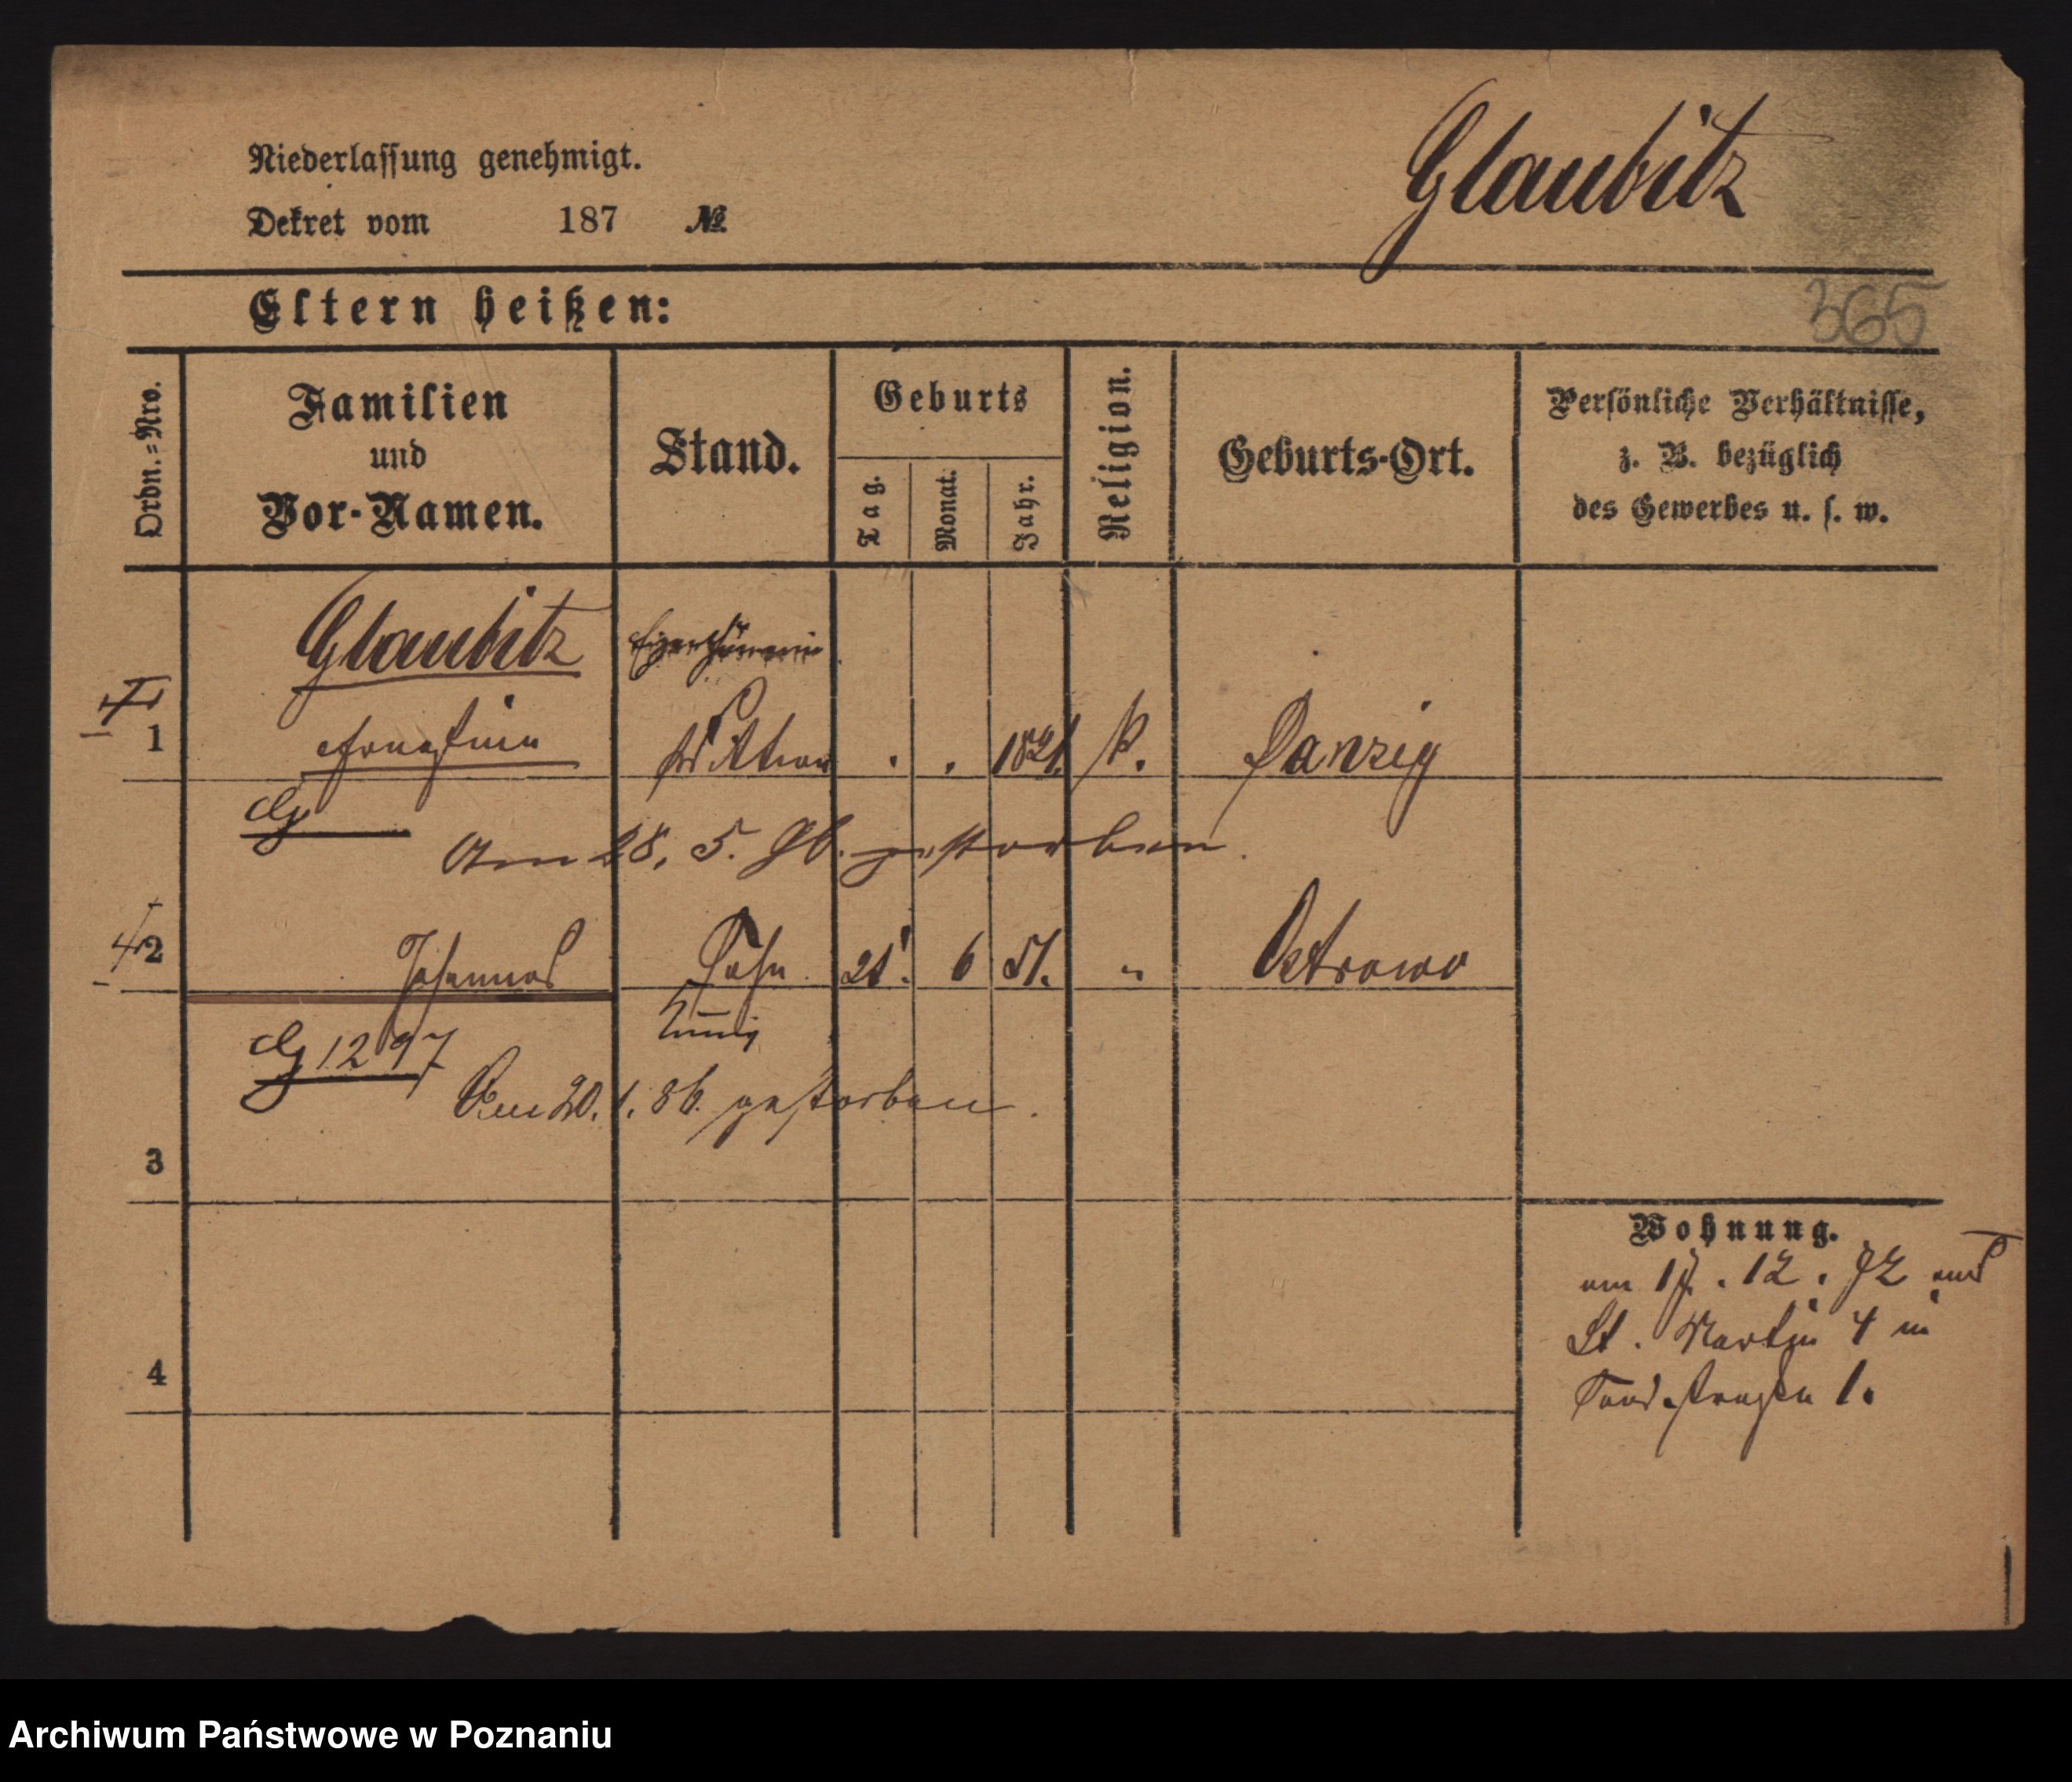 Niederlassung genehmigt.
Dekret vom 187 №
Glaubitz
365
Eltern heißen:
Ordn.=Nro.
Familien
und
Vor-Namen.
Stand.
Geburts
Tag.
Monat.
Jahr.
Religion.
Geburts-Ort.
Persönliche Verhältnisse,
z. B. bezüglich
des Gewerbes u. s. w.
Glaubitz Eigenthümerin
1 1821. k. Danzig
Am 28. 5. gestorben.
2 Johannes Sohn 21. 6 51. " Ostrowo
1297
Am 20. 1. 86. gestorben.
3
Wohnung.
am 17. 12. 72 aus
St. Martin 4 in
1.
4
Archiwum Państwowe w Poznaniu